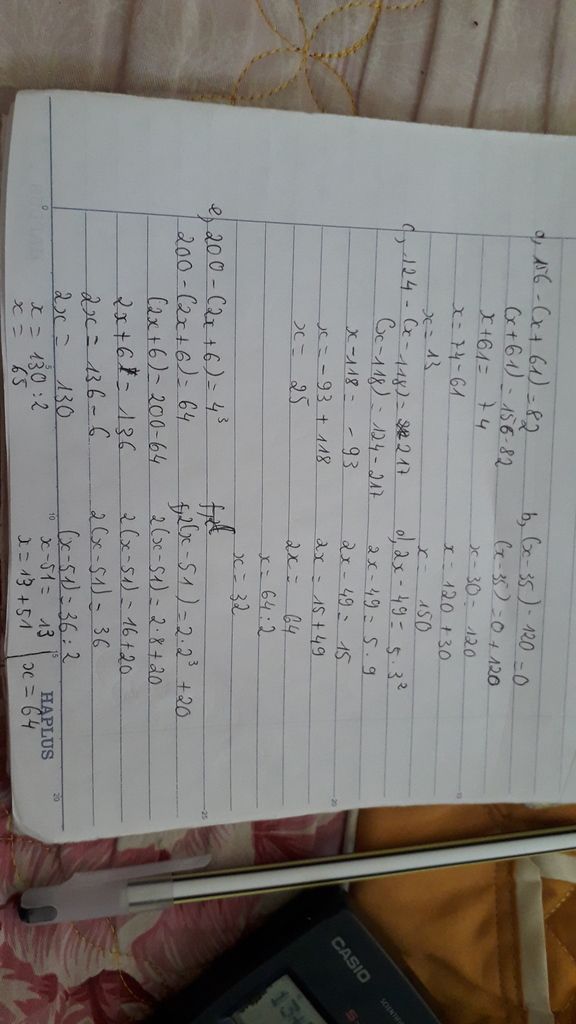 a, 156 - (x + 61) = 82
(x + 61) = 156 - 82
x + 61 = 74
x = 74 - 61
x = 13
b, (x - 35) - 120 = 0
(x - 35) = 0 + 120
x - 30 = 120
x = 120 + 30
x = 150
c, 124 - (x - 118) = 217
(x - 118) = 124 - 217
x - 118 = - 93
x = - 93 + 118
x = 25
d, 2x - 49 = 5 . 3²
2x - 49 = 5 . 9
2x - 49 = 15
2x = 15 + 49
2x = 64
x = 64 : 2
x = 32
e, 200 - (2x + 6) = 4³
200 - (2x + 6) = 64
(2x + 6) = 200 - 64
2x + 6 = 136
2x = 136 - 6
2x = 130
x = 130 : 2
x = 65
f, 2(x - 51) = 2 . 2³ + 20
2(x - 51) = 2 . 8 + 20
2(x - 51) = 16 + 20
2(x - 51) = 36
(x - 51) = 36 : 2
x - 51 = 13
x = 13 + 51
x = 64
0 5 10 15 20
HAPLUS
15
20
25
CASIO
SCIENTIFIC